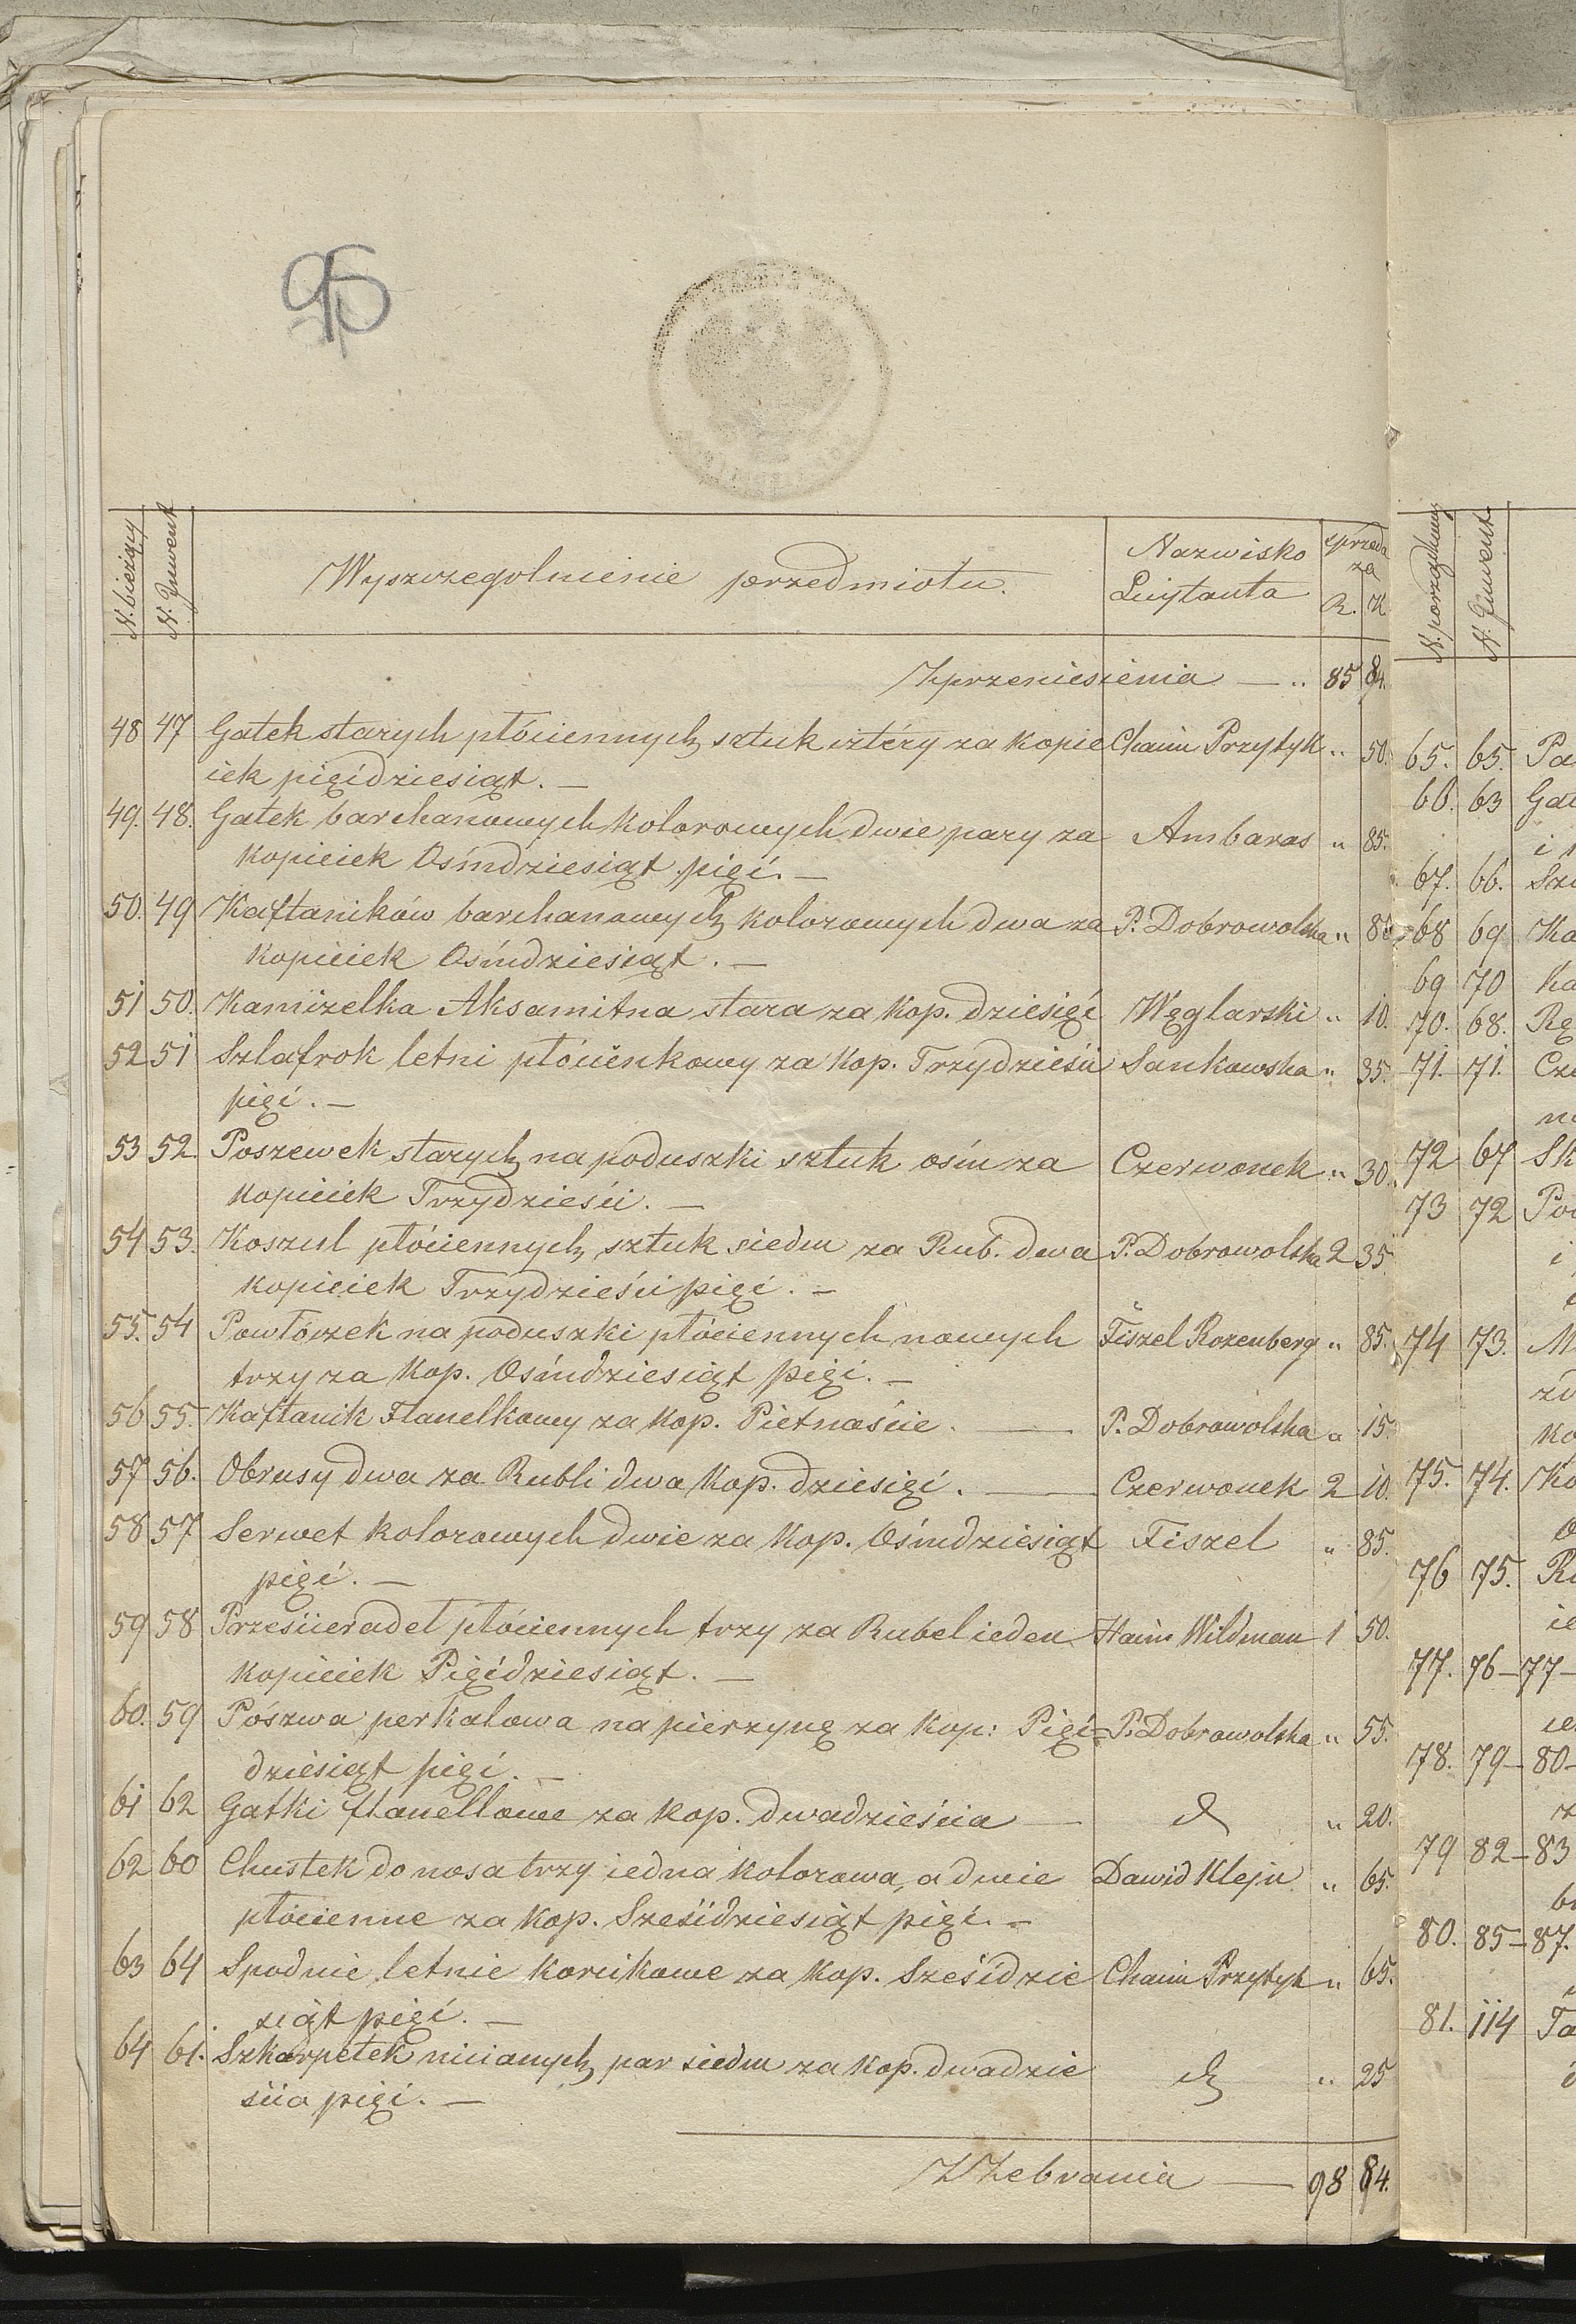 95
N. bieżący N. Inwent. Wyszczegolnienie przedmiotu. Nazwisko sprzeda
Licytanta za
R. K
Z przeniesienia — „ 85 84.
48 47 Gatek starych płóciennych sztuk cztéry za kopie Chaim Przytyk „ 50.
iek pięćdziesiąt. —
49. 48. Gatek barchanowych kolorowych dwie pary za Ambaras „ 85.
kopieiek Osmdziesiąt pięć. —
50. 49 Kaftaników barchanowych kolorowych dwa za P. Dobrowolska „ 80
kopieiek Ośmdziesiąt. —
51 50. Kamizelka Aksamitna stara za kop. dziesięć Węglarski „ 10.
52 51 Szlafrok letni płócienkowy za kop. Trzydzieści Sankowska „ 35.
pięć. —
53 52. Poszewek starych na poduszki sztuk ośm za Czerwonek „ 30.
kopieiek Trzydzieści. —
54 53. Koszul płóciennych sztuk siedm za Rub. dwa P. Dobrowolska 2 35
kopieiek Trzydzieści pięć. —
55. 54 Powłóczek na poduszki płóciennych nowych Fiszel Rozenberg „ 85.
trzy za kop. Ośmdziesiąt pięć. —
56 55. Kaftanik Flanelkowy za kop. Pietnaście. — P. Dobrowolska „ 15.
57 56. Obrusy dwa za Rubli dwa kop. dziesięć. — Czerwonek 2 10.
58 57 Serwet kolorowych dwie za kop. Ośmdziesiąt Fiszel „ 85.
pięć. —
59 58 Prześcieradeł płóciennych trzy za Rubel ieden Haim Wildman 1 50.
kopieiek Pięćdziesiąt. —
60. 59 Pószwa perkalowa na pierzynę za kop: Pięć= P. Dobrowolska „ 55.
dziesiąt pięć. —
61 62 Gatki flanellowe za kop. dwadzieścia — d „ 20.
62 60 Chustek do nosa trzy iedna kolorowa, a dwie Dawid Klejn „ 65.
płócienne za kop. Sześćdziesiąt pięć. —
63 64 Spodnie letnie korcikowe za kop. Sześćdzie Chaim Przytyk „ 65.
siąt pięć. —
64 61. Szkarpetek nicianych par siedm za kop. dwadzie d „ 25
ścia pięć. —
Z Zebrania — 98 84.
N. porządkowy N. Inwent.
65. 65. Pa
66. 63 Gat
i
67. 66. Sz
68 69 Ka
69 70 ka
70. 68. Rę
71. 71. Cz
72 67 Sk
73 72 Po
i
74 73. M
ko
75. 74. Ko
76 75. R
ie
77. 76–77–
78. 79–80–
79 82–83
80. 85–87.
81. 114 Ta